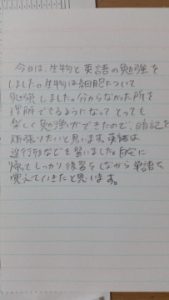 今日は、生物と英語の勉強を
しました。生物は細胞について
勉強しました。分からなかった所を
理解できるようになって とっても
楽しく勉強ができたので、暗記を
頑張りたいと思います。英語は
進行形などを習いました。
しっかり復習をしながら単語も
覚えていきたと思います。